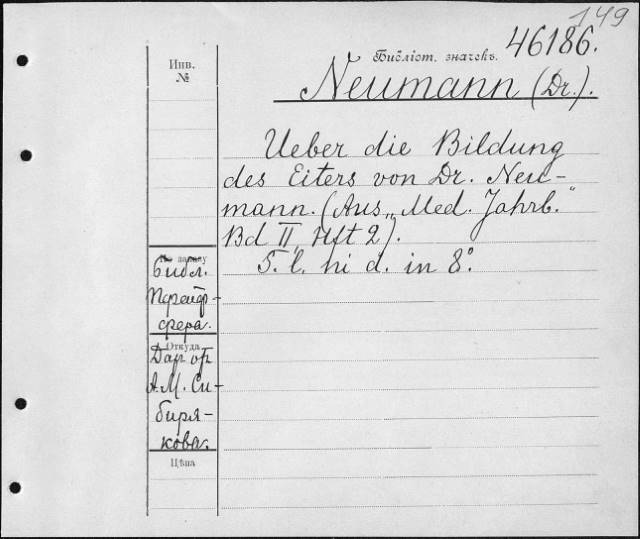 149
Библіот. значекъ. 46186.
Инв.
№
Neumann (Dr.).
Ueber die Bildung
des Eiters von Dr. Neu-
mann. (Aus „Med. Jahrb."
Bd II, Hft 2).
S. l. ni d. in 8°.
библ.
Пфейф-
фера.
Откуда
Дар от
А.М. Си-
биря-
кова.
Цѣна